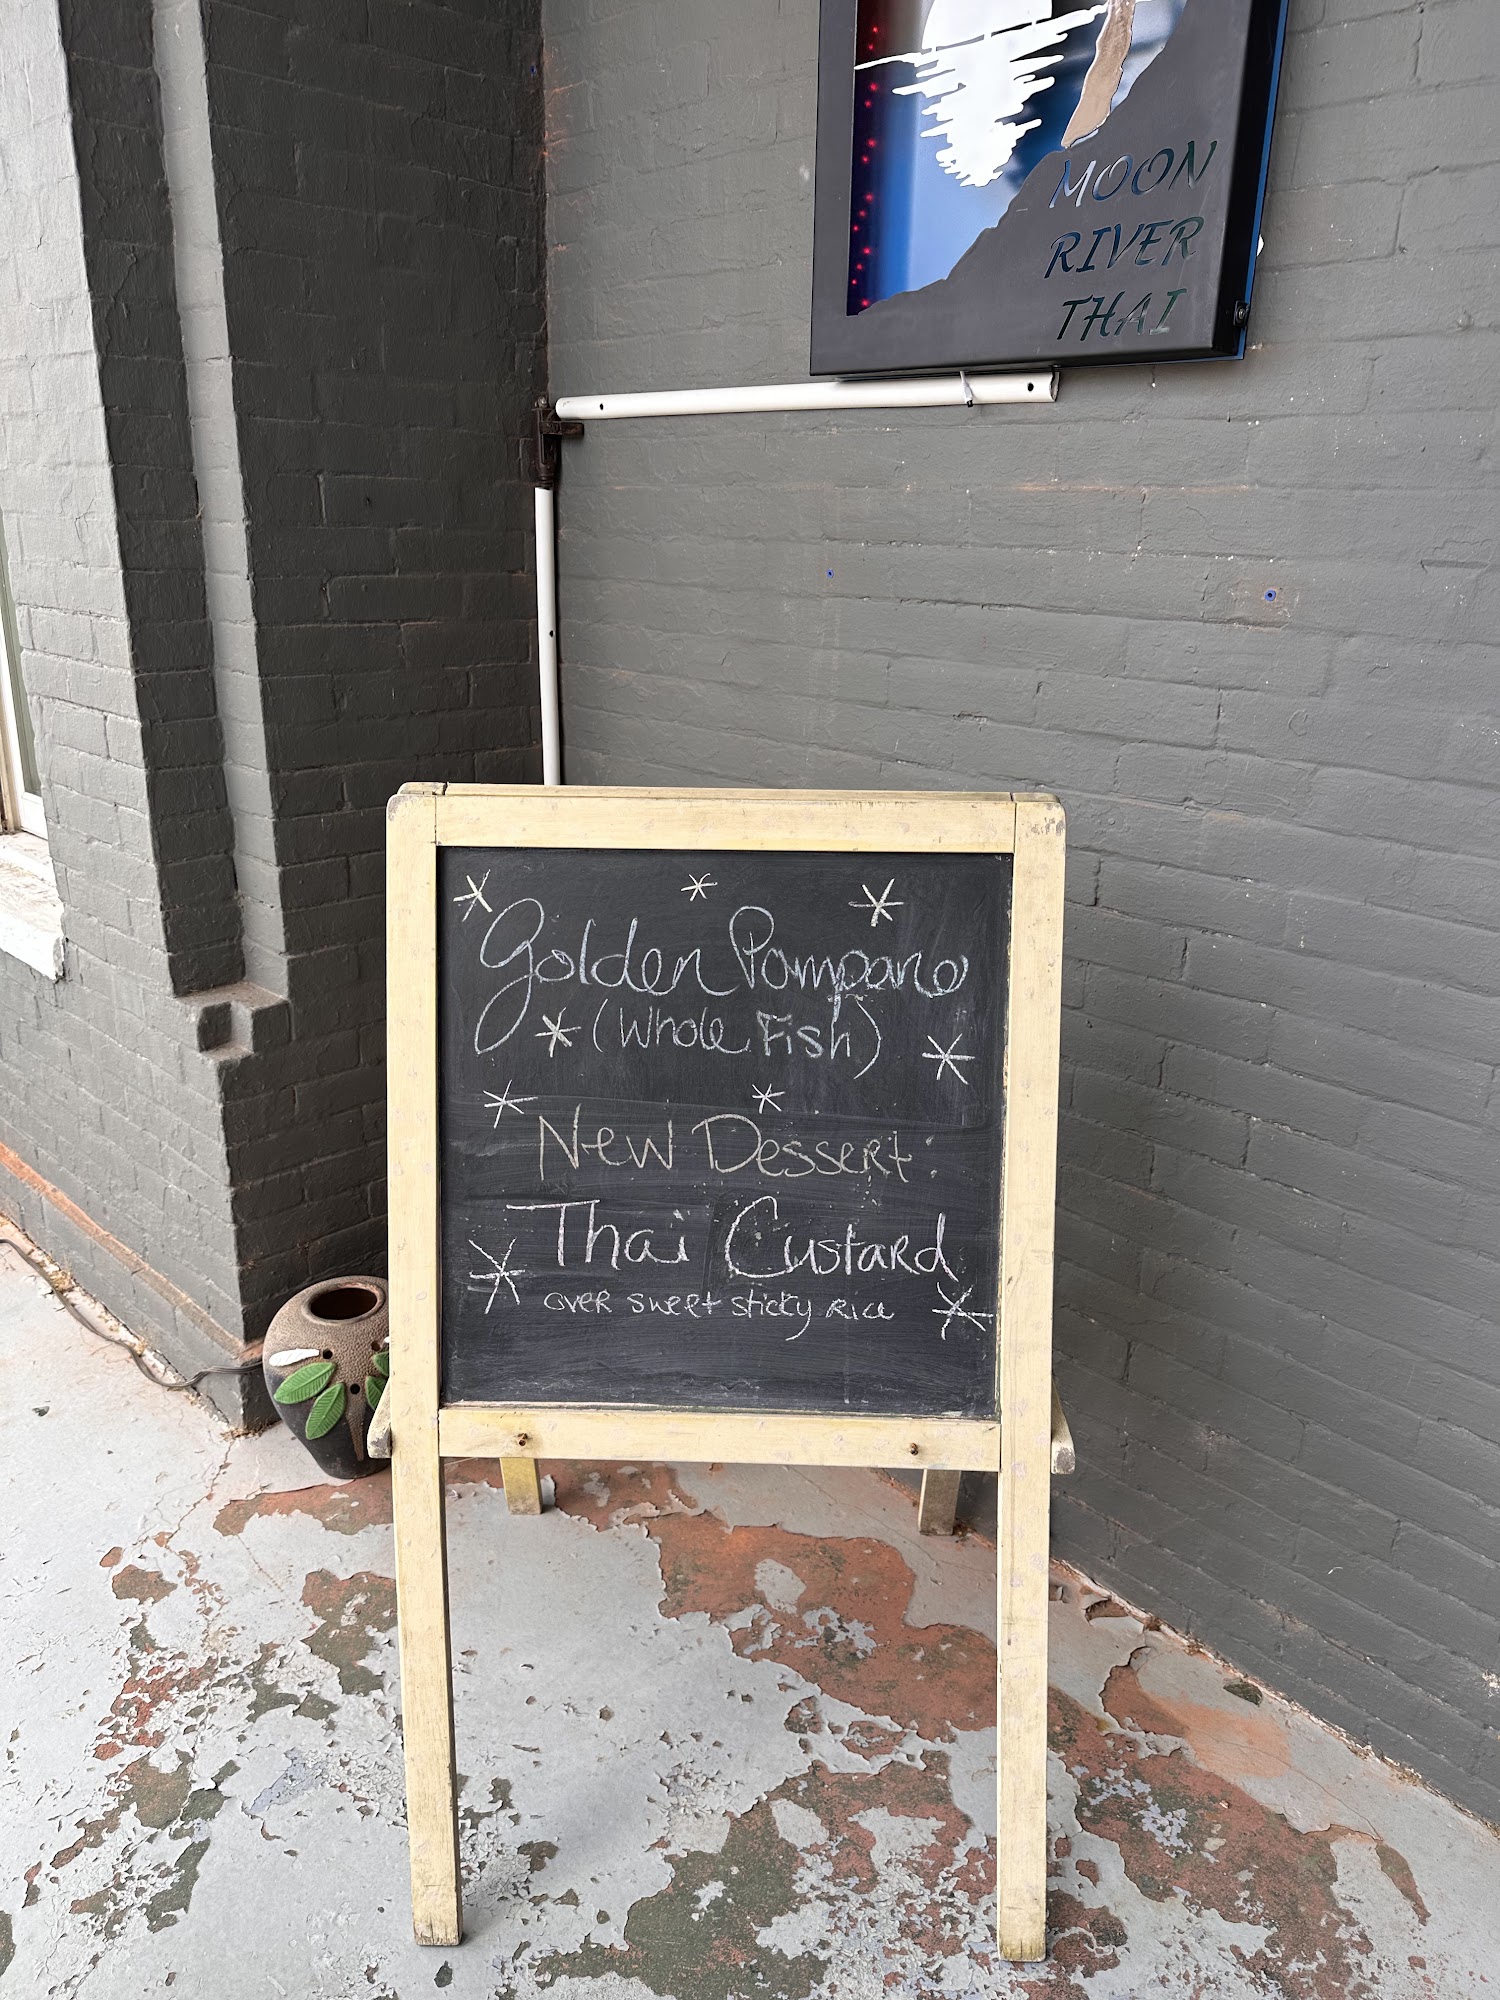 MOON
RIVER
THAI
Golden Pompano
(Whole Fish)
New Dessert:
Thai Custard
over sweet sticky Rice